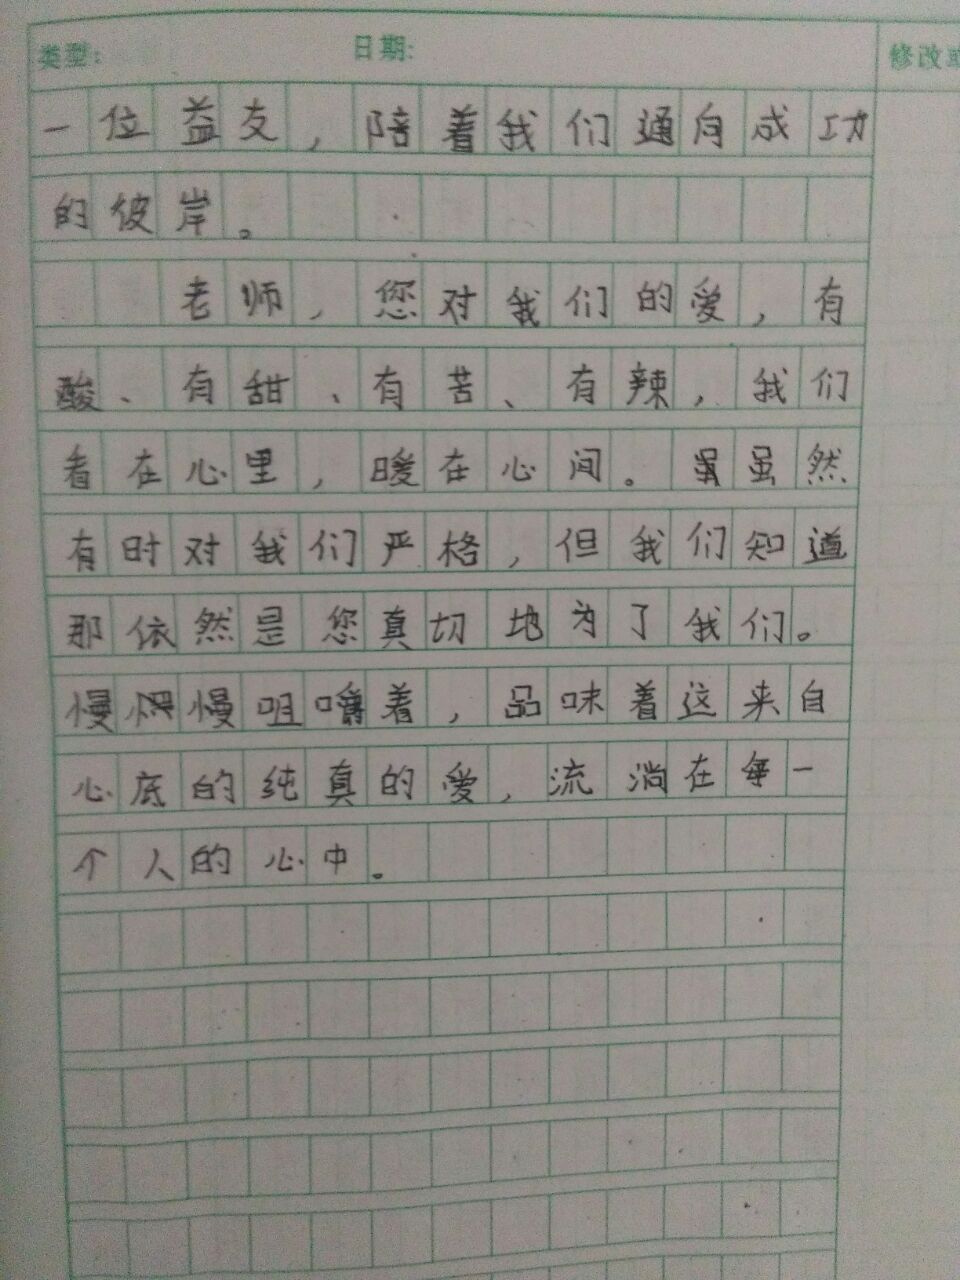 类型: 日期: 修改或
一位益友，陪着我们通向成功
的彼岸。
老师，您对我们的爱，有
酸、有甜、有苦、有辣，我们
看在心里，暖在心间。虽虽然
有时对我们严格，但我们知道
那依然是您真切地为了我们。
慢慢慢咀嚼着，品味着这来自
心底的纯真的爱，流淌在每一
个人的心中。